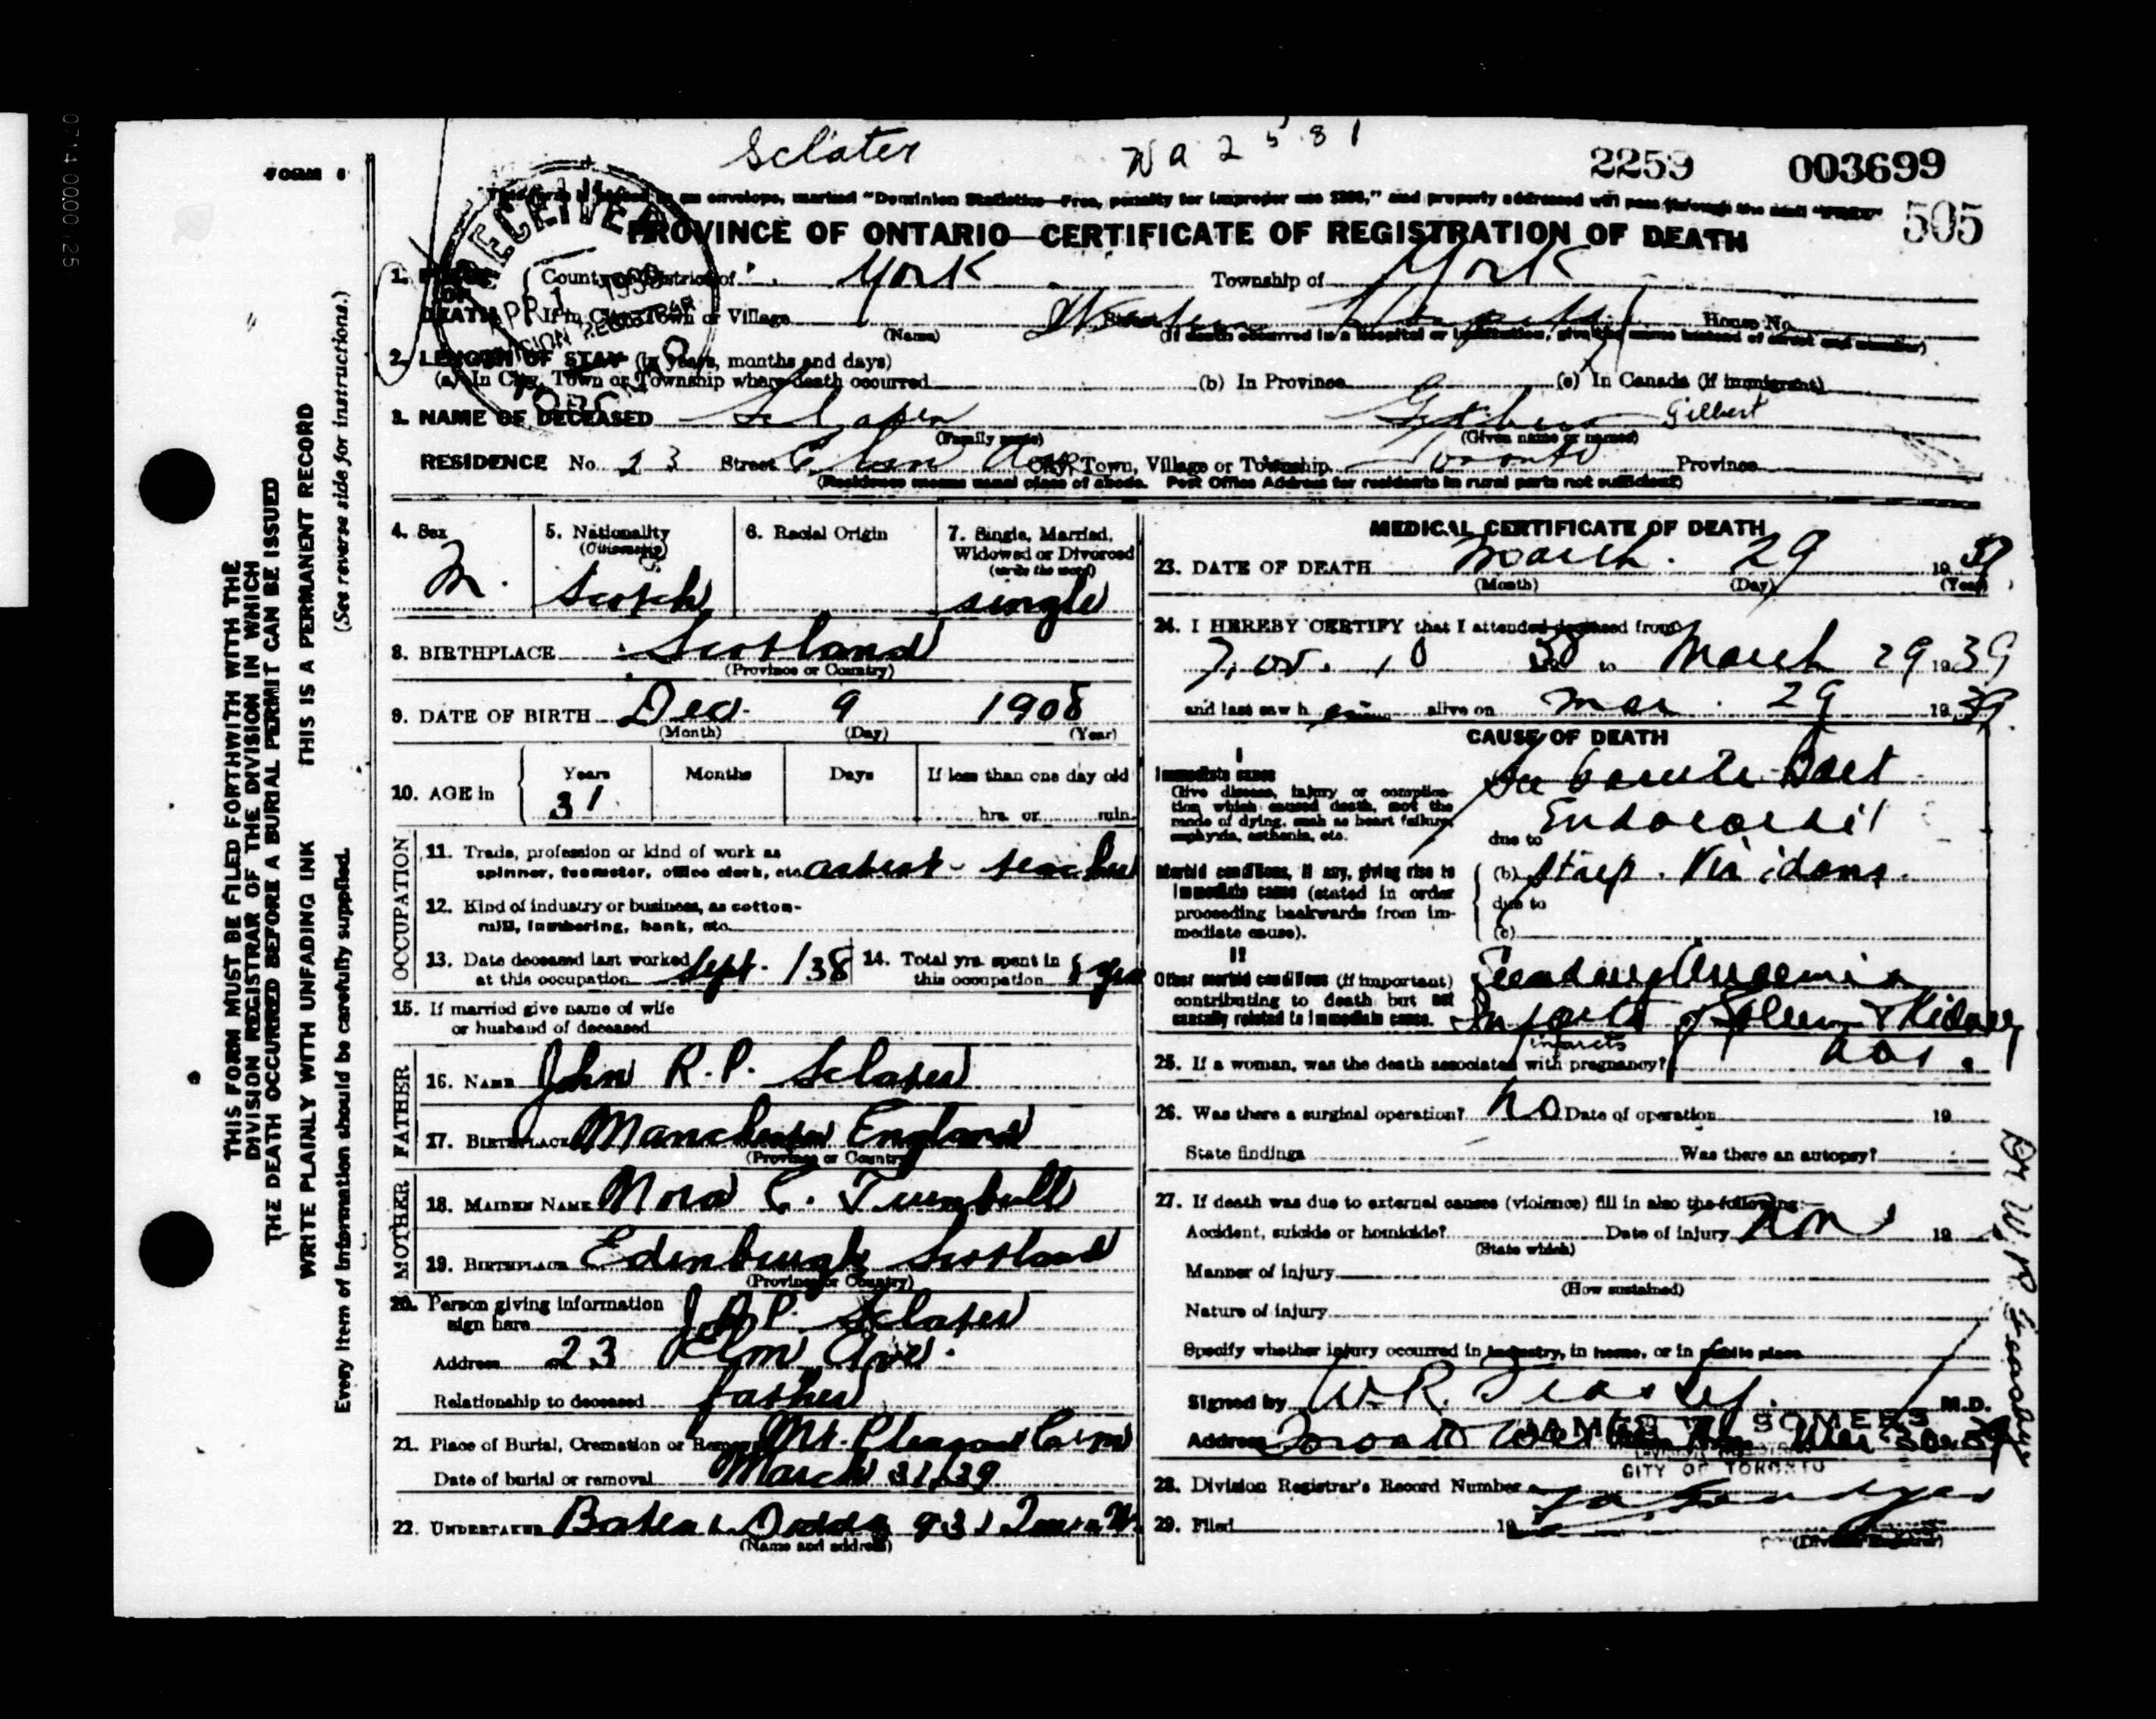 Sclater Wa 2581 2259 003699
FORM
an envelope, marked "Dominion Statistics—Free, penalty for improper use $300," and properly addressed will pass through the mail
505
PROVINCE OF ONTARIO—CERTIFICATE OF REGISTRATION OF DEATH
RECEIVED APR 1 1939
1. PLACE OF DEATH County or District of York Township of York
If in City, Town or Village (Name) Street Western Hospital House No.
(If death occurred in a hospital or institution, give the name instead of street and number)
2. LENGTH OF STAY (in years, months and days)
(a) In City, Town or Township where death occurred (b) In Province (c) In Canada (if immigrant)
3. NAME OF DECEASED Sclater Gilbert
(Family name) (Given name or names)
RESIDENCE No. 23 Street Elm Ave City, Town, Village or Township Toronto Province
(Residence means usual place of abode. Post Office Address for residents in rural parts not sufficient)
4. Sex M.
5. Nationality (Citizenship) Scotch
6. Racial Origin
7. Single, Married, Widowed or Divorced (write the word) single
8. BIRTHPLACE Scotland
(Province or Country)
9. DATE OF BIRTH Dec. 9 1908
(Month) (Day) (Year)
10. AGE in Years 31 Months Days If less than one day old hrs. or min.
OCCUPATION
11. Trade, profession or kind of work as
spinner, teamster, office clerk, etc. artist - teacher
12. Kind of industry or business, as cotton-
mill, lumbering, bank, etc.
13. Date deceased last worked at this occupation Sept. /38
14. Total yrs. spent in this occupation
15. If married give name of wife
or husband of deceased
FATHER
16. NAME John R.P. Sclater
17. BIRTHPLACE Manchester England
(Province or Country)
MOTHER
18. MAIDEN NAME Nora C. Turnbull
19. BIRTHPLACE Edinburgh Scotland
(Province or Country)
20. Person giving information
sign here J.R.P. Sclater
Address 23 Elm Ave.
Relationship to deceased father
21. Place of Burial, Cremation or Removal Mt. Pleasant Cem
Date of burial or removal March 31/39
22. UNDERTAKER Bates & Dodds 931 Queen W.
(Name and address)
MEDICAL CERTIFICATE OF DEATH
23. DATE OF DEATH March 29 1939
(Month) (Day) (Year)
24. I HEREBY CERTIFY that I attended deceased from
Nov. 10 38 to March 29 1939
and last saw him alive on Mar. 29 1939
CAUSE OF DEATH
I
Immediate cause
(Give disease, injury or complica-
tion which caused death, not the
mode of dying, such as heart failure,
asphyxia, asthenia, etc.
Subacute Bact
Endocardit
due to
Morbid conditions, if any, giving rise to
immediate cause (stated in order
proceeding backwards from im-
mediate cause).
(b) Strep. Viridans
due to
(c)
II
Other morbid conditions (if important)
contributing to death but not
causally related to immediate cause.
Secondary Anaemia
Infarcts of Spleen & Kidney
infarcts
25. If a woman, was the death associated with pregnancy?
26. Was there a surgical operation? No Date of operation 19
State findings Was there an autopsy?
27. If death was due to external causes (violence) fill in also the following:
Accident, suicide or homicide? Date of injury 19
(State which)
Manner of injury
(How sustained)
Nature of injury
Specify whether injury occurred in industry, in home, or in public place
Signed by W.R. M.D.
Address Toronto
JAMES SOMERS
CITY OF TORONTO
28. Division Registrar's Record Number
29. Filed 19
(Division Registrar)
THIS FORM MUST BE FILED FORTHWITH WITH THE
DIVISION REGISTRAR OF THE DIVISION IN WHICH
THE DEATH OCCURRED BEFORE A BURIAL PERMIT CAN BE ISSUED
WRITE PLAINLY WITH UNFADING INK THIS IS A PERMANENT RECORD
Every item of information should be carefully supplied. (See reverse side for instructions.)
0714 0000 25